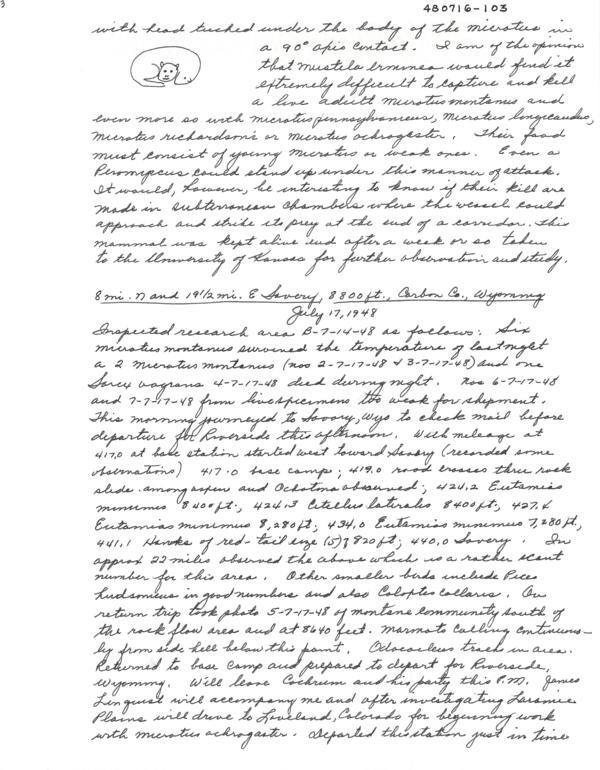 3
480716-103
with head tucked under the body of the microtus in
a 90° apis contact. I am of the opinion
that Mustela erminea would find it
extremely difficult to capture and kill
a live adult Microtus montanus and
even more so with microtus pennsylvanicus, Microtus longicaudus,
Microtus richardsoni or Microtus ochrogaster. Their food
must consist of young Microtus or weak ones. Even a
Peromyscus could stand up under this manner of attack.
It would, however, be interesting to know if their kill are
made in subterranean chambers where the weasel could
approach and strike its prey at the end of a corridor. This
mammal was kept alive and after a week or so taken
to the University of Kansas for further observation and study.
8 mi. N and 19 1/2 mi. E Savery, 8800 ft., Carbon Co., Wyoming
July 17, 1948
Inspected research area B-7-14-48 as follows: Six
microtus montanus survived the temperature of last night
a 2 Microtus montanus (nos 2-7-17-48 & 3-7-17-48) and one
Sorex vagrans 4-7-17-48 died during night. Nos 6-7-17-48
and 7-7-17-48 from live specimens too weak for shipment.
This morning journeyed to Savery, Wyo to check mail before
departure for Riverside this afternoon. With mileage at
417.0 at base station started west toward Savery (recorded some
observations) 417.0 base camp; 419.0 road crosses thru rock
slide among aspen and Ochotona observed; 424.2 Eutamias
minimus 8400 ft.; 424.3 Citellus lateralis 8400 ft.; 427.4
Eutamias minimus 8,280 ft.; 434.0 Eutamias minimus 7,280 ft.,
441.1 Hawks of red-tail size (5) 820 ft; 440.0 Savery. In
approx 22 miles observed the above which is a rather scant
number for this area. Other smaller birds include Pica
hudsonicus in good numbers and also Colaptes collaris. On
return trip took photo 5-7-17-48 of montane community south of
the rock flow area and at 8640 feet. Marmots calling continuous-
ly from side hill below this point. Odocoileus tracks in area.
Returned to base camp and prepared to depart for Riverside,
Wyoming. Will leave Cockrum and his party this P.M. James
Linquist will accompany me and after investigating Laramie
Plains will drive to Loveland, Colorado for beginning work
with microtus ochrogaster. Departed this station just in time